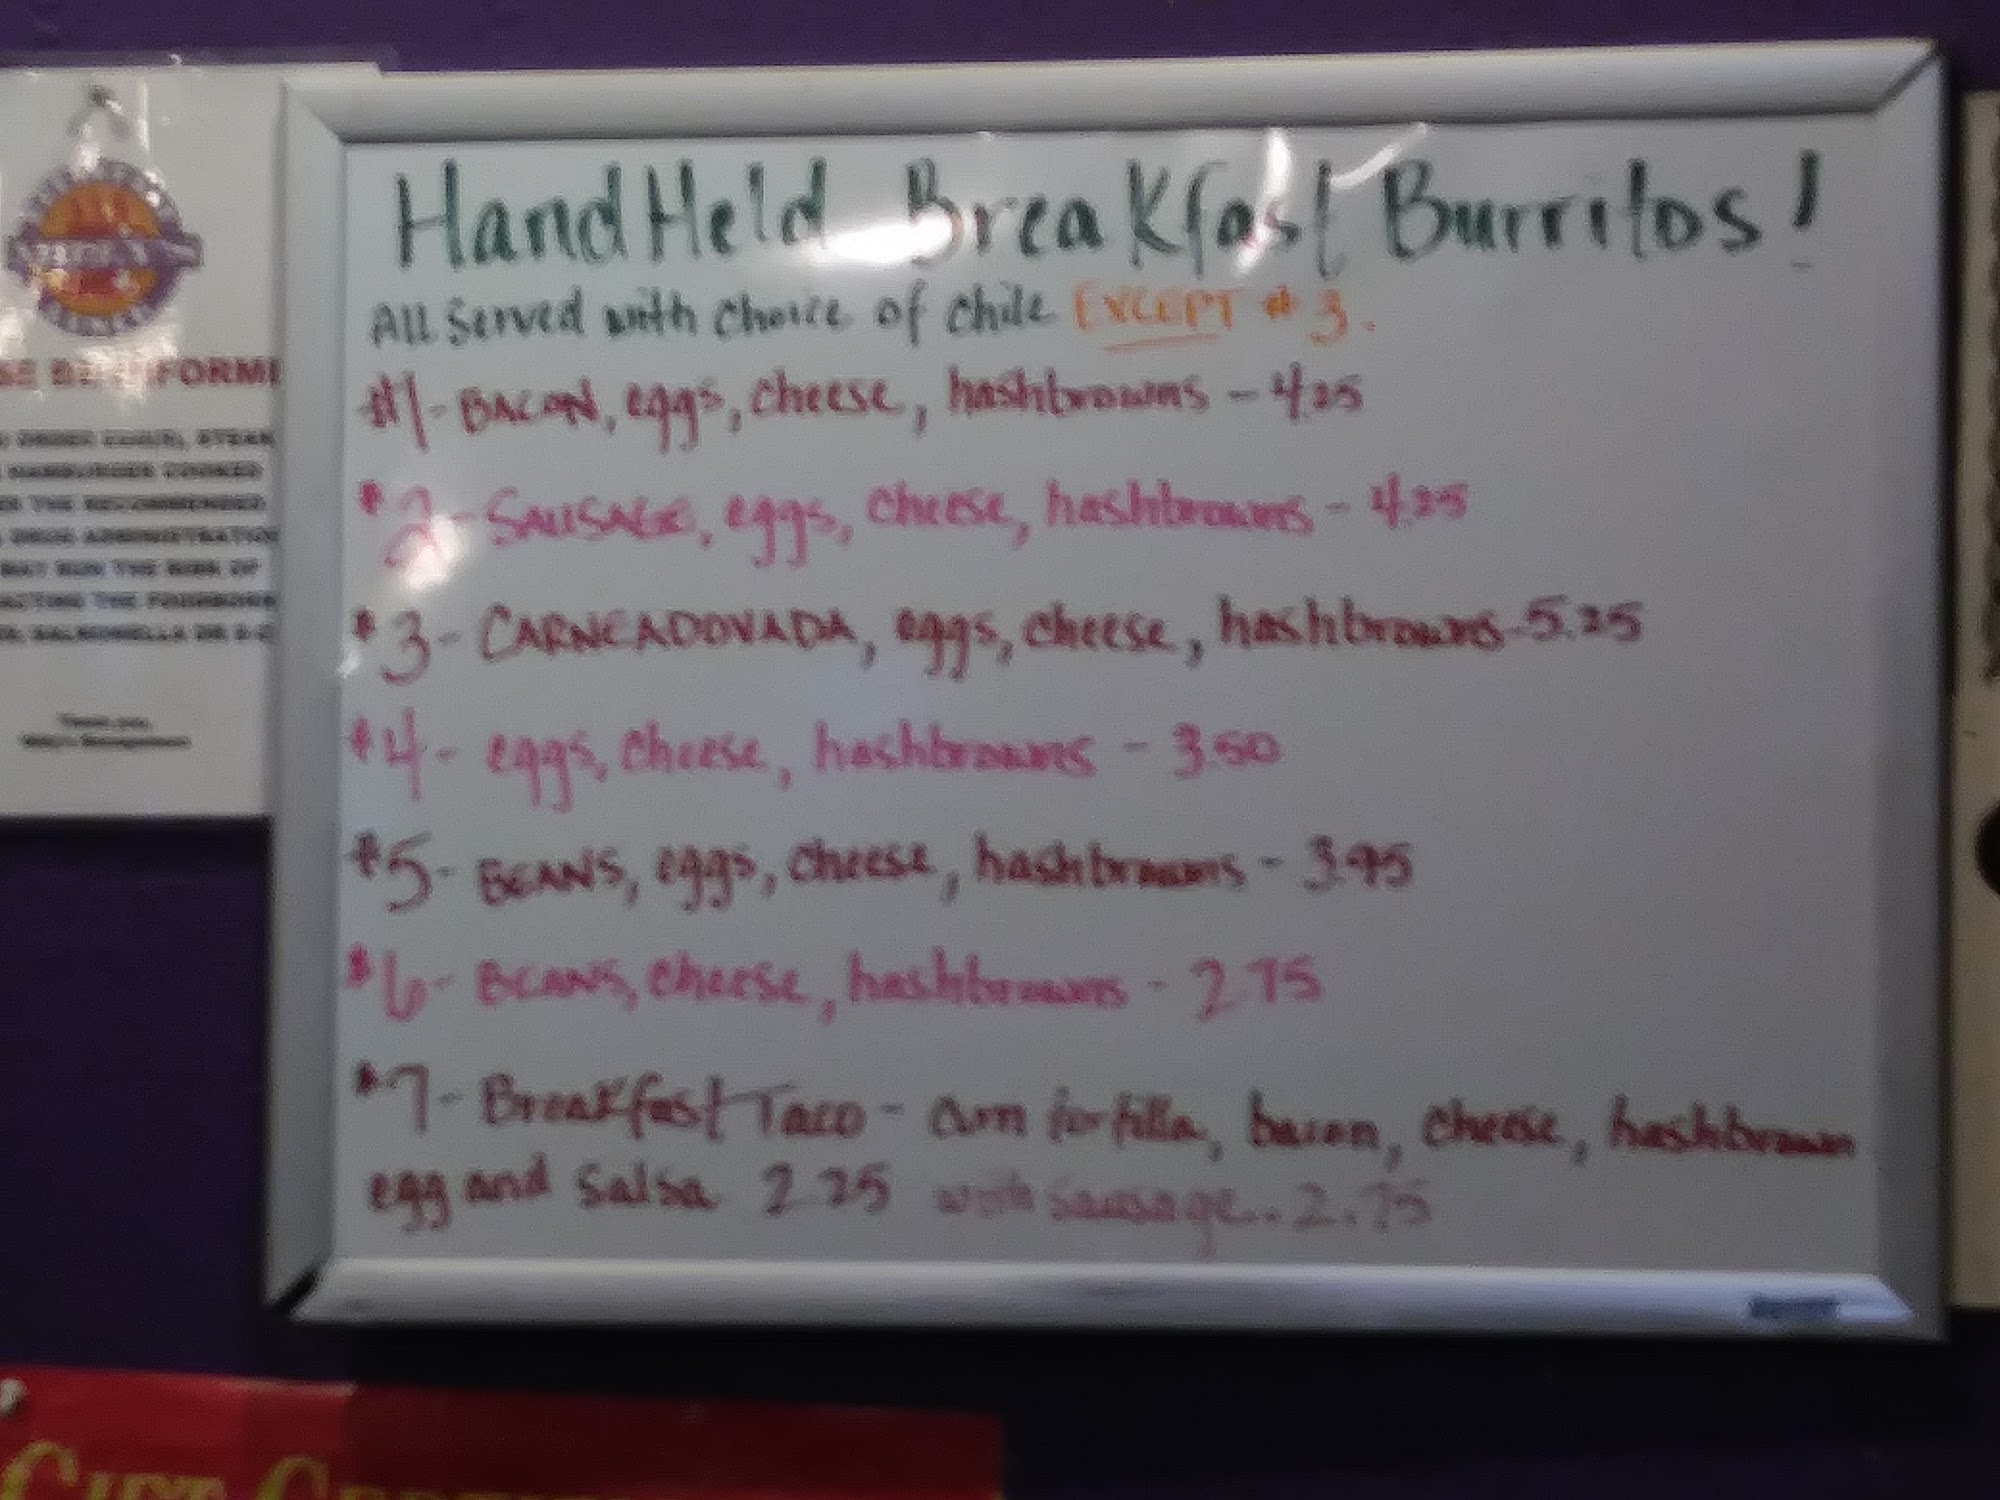 HandHeld Breakfast Burritos!
All Served with choice of chile EXCEPT #3.
#1- BACON, eggs, cheese, hashbrowns - 4.25
#2- SAUSAGE, eggs, cheese, hashbrowns - 4.25
#3- CARNEADOVADA, eggs, cheese, hashbrowns - 5.25
#4- eggs, cheese, hashbrowns - 3.50
#5- BEANS, eggs, cheese, hashbrowns - 3.95
#6- BEANS, cheese, hashbrowns - 2.75
#7- Breakfast Taco - corn tortilla, bacon, cheese, hashbrown
egg and salsa 2.25 with sausage.. 2.75
FORM
STEAK
HAMBURGER COOKED
THE RECOMMENDED
DRUG ADMINISTRATION
MAY RUN THE RISK OF
THE FOODBORNE
SALMONELLA OR E-C
Thank you,
Management
GIFT